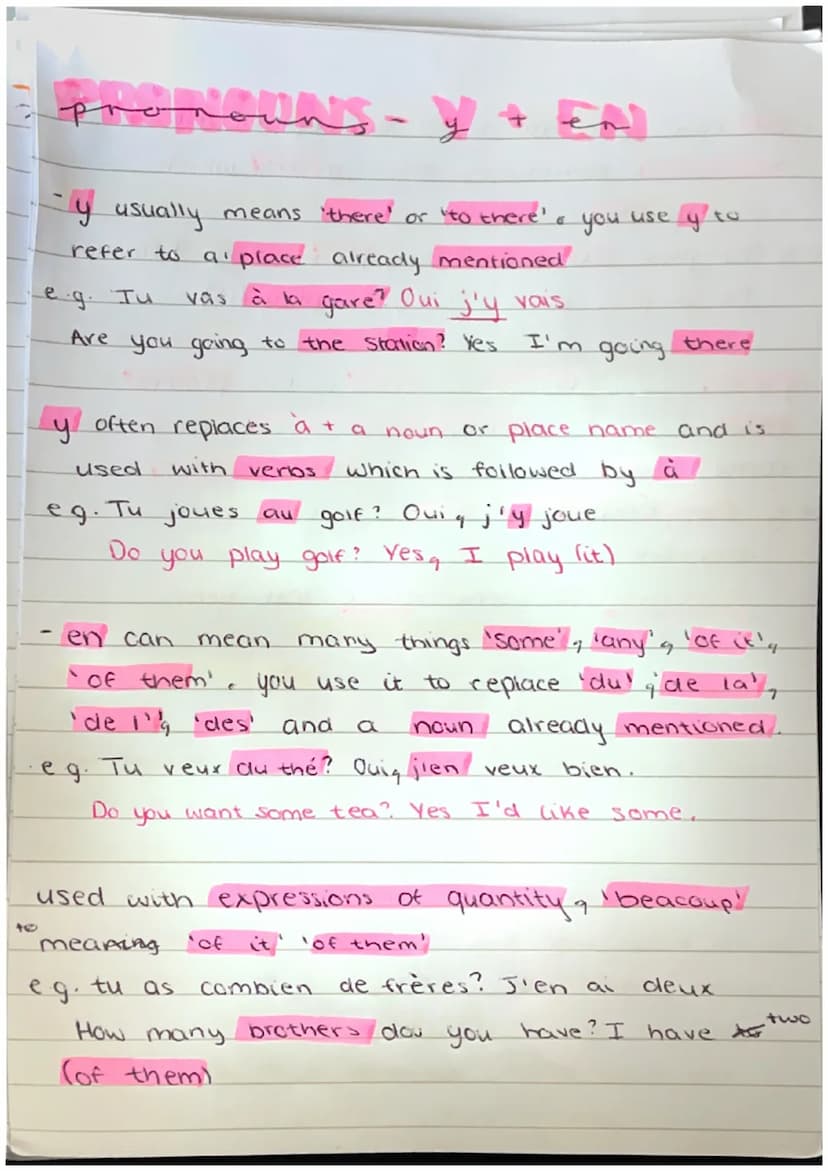 PRONOUNS - Y + EN
pronouns - y + en
- y usually means 'there' or 'to there', you use y to
refer to a place already mentioned
e.g. Tu vas à la gare? Oui j'y vais
Are you going to the station? Yes I'm going there
y often replaces à + a noun or place name and is
used with verbs which is followed by à
eg. Tu joues au golf? Oui, j'y joue
Do you play golf? Yes, I play (it)
- en can mean many things 'some', 'any', 'of it',
'of them', you use it to replace 'du', 'de la',
'de l'', 'des' and a noun already mentioned.
eg. Tu veux du thé? Oui, j'en veux bien.
Do you want some tea? Yes I'd like some.
used with expressions of quantity, 'beacoup'
to meaning 'of it' 'of them'
eg. tu as combien de frères? J'en ai deux
How many brothers do you have? I have two
(of them)